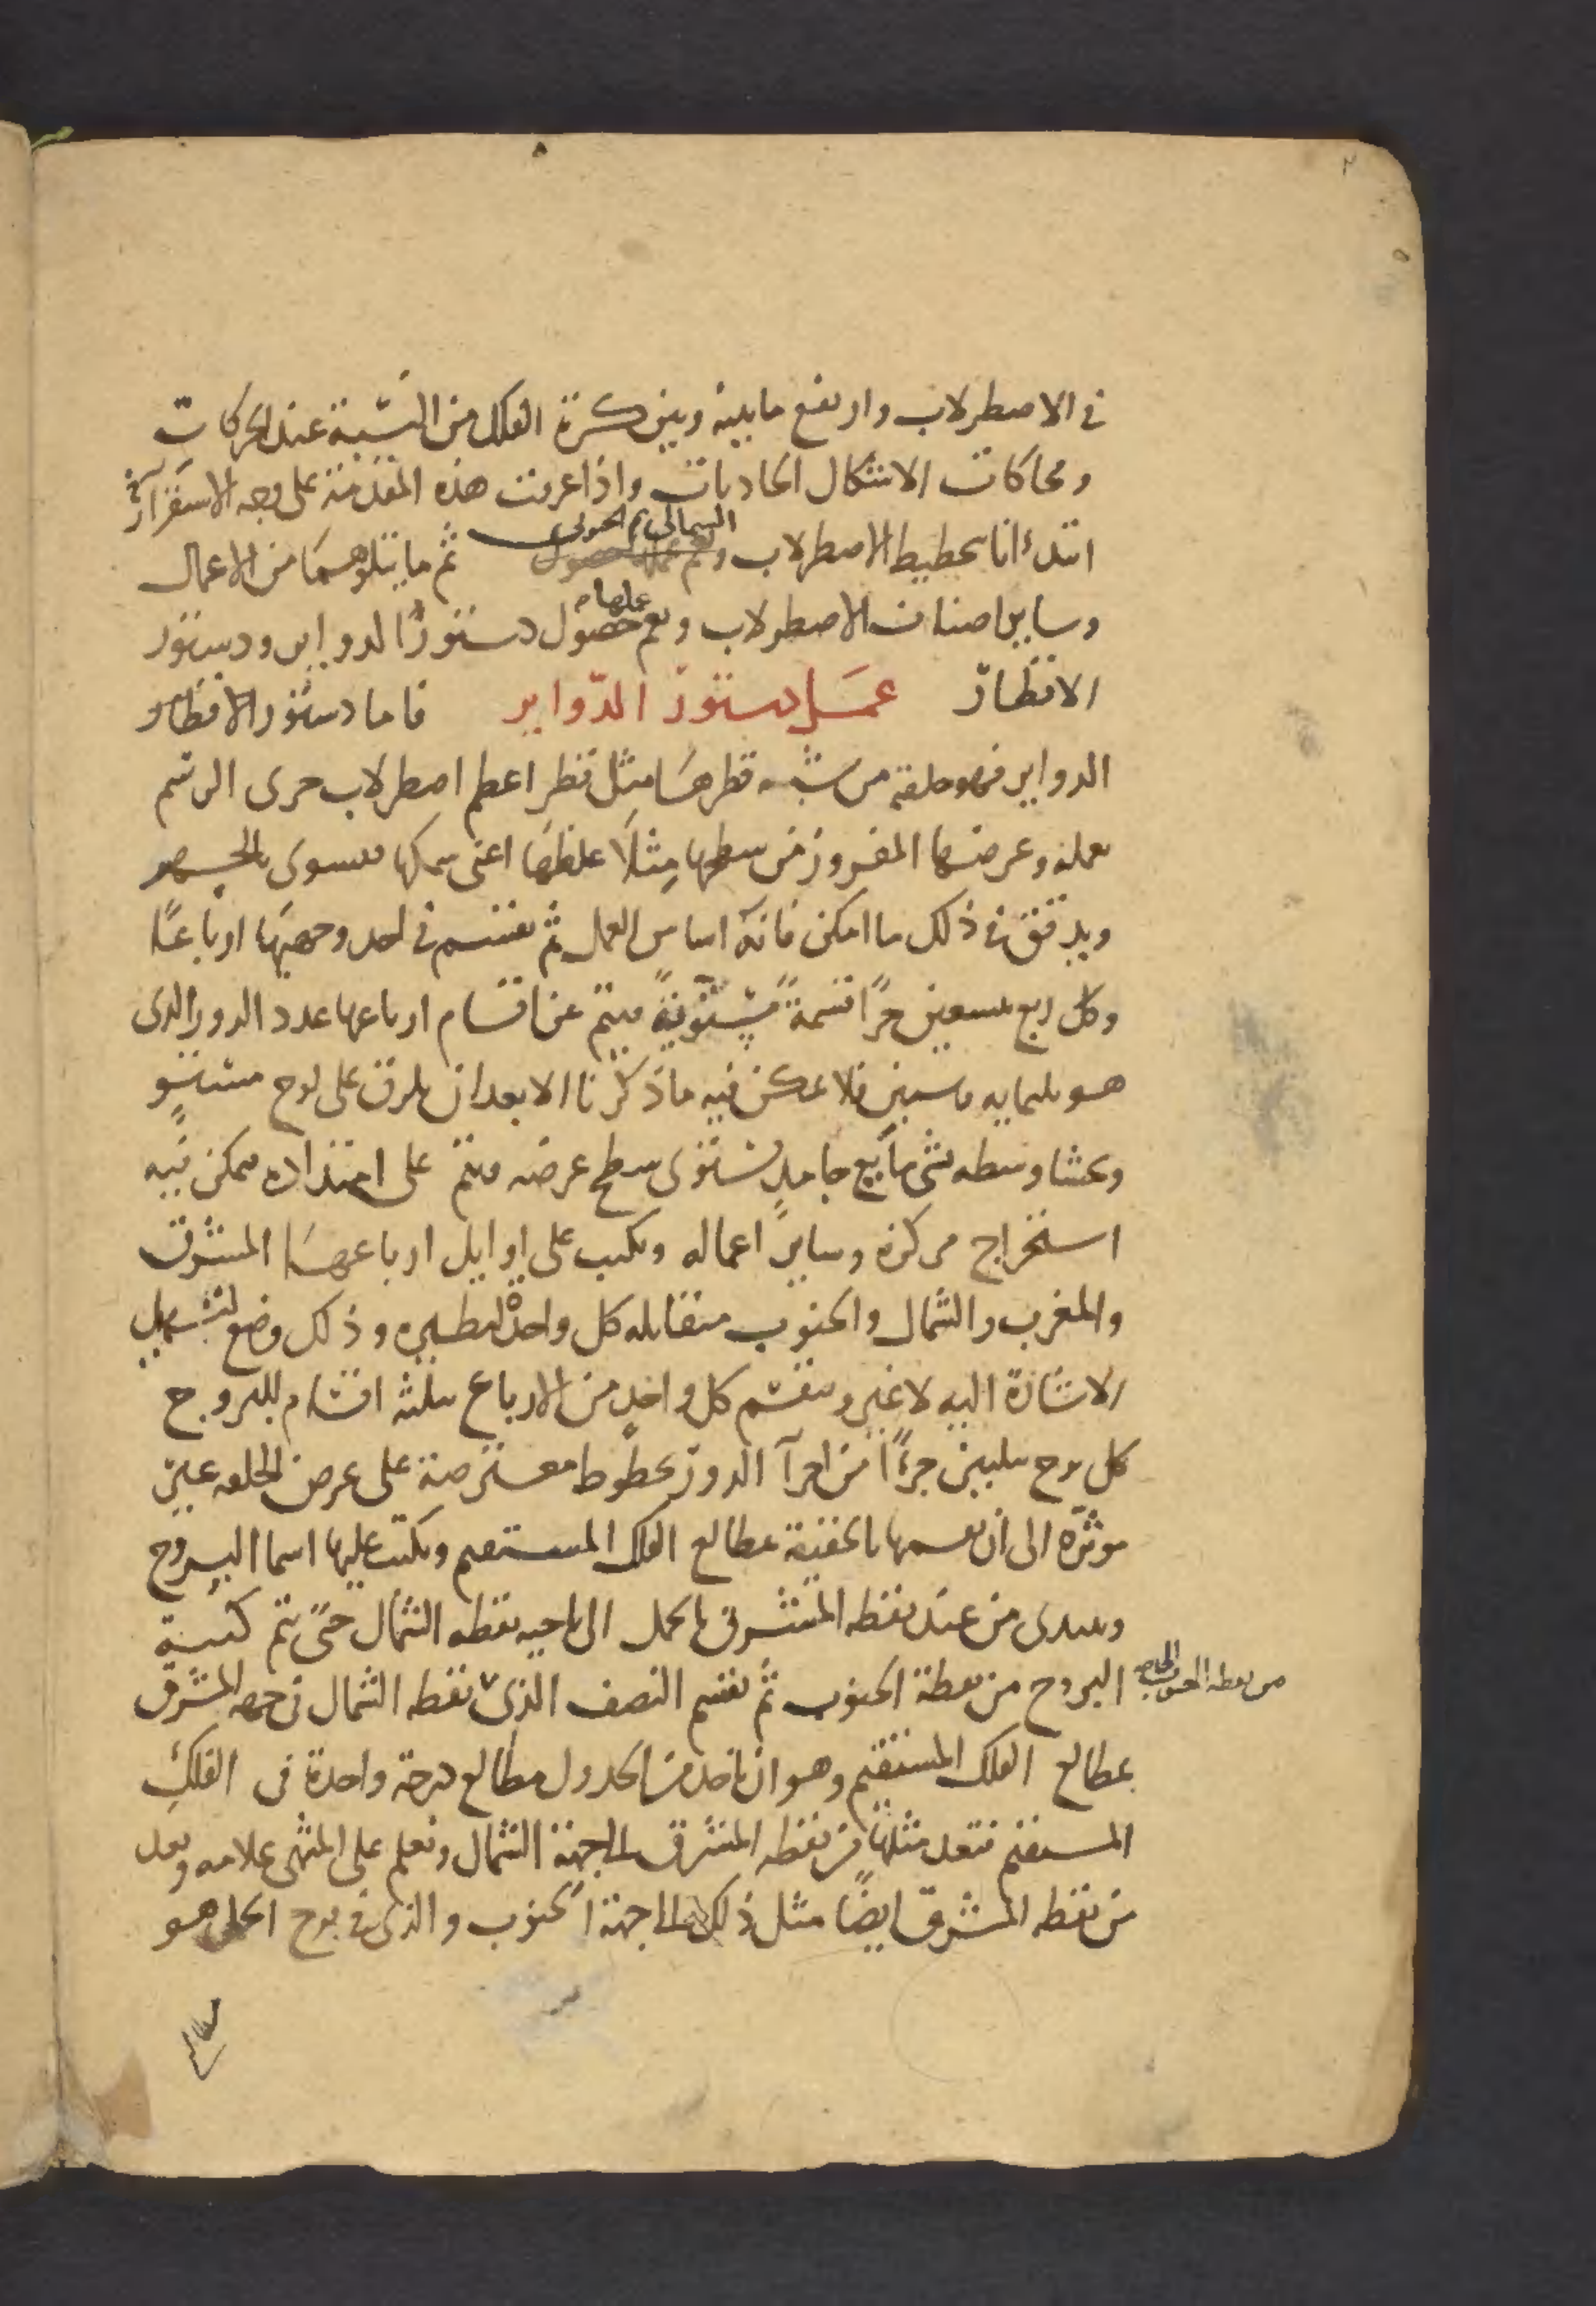 في الاصطرلاب وارتفع ما بينه وبين كرة الفلك من النسبة عند الحركات
ومحاكات الاشكال الحادثات واذا عرفت هذه المقدمة على وجه الاستقرار
ابتدئ انا بتخطيط الاصطرلاب الشمالي ثم الجنوبي ثم ما يتلوهما من الاعمال
وساير اصناف الاصطرلاب ويعم عملها حصول دستور الدواير ودستور
الاقطار عمل دستور الدواير فاما دستور الاقطار
الدواير فهو حلقة من شبه قطرها مثل قطر اعظم اصطرلاب جرى الرسم
بعمله وعرضها المفروز من سطحها مثلا غلظها اعنى سمكها فيسوى بالجسهر
ويدقق في ذلك ما امكن فانه اساس العمل ثم يقسم في احد وجهيها ارباعا
وكل ربع بتسعين جزا قسمة مستوية فيتم عن اقسام ارباعها عدد الدور الذى
هو ثلثمايه وستين فلا يمكن فيه ما ذكرنا الا بعد ان يلزق على لوح مستو
ويحشا وسطه بشى مايع جامد يستوى سطح عرضه ويتم على امتداده يمكن فيه
استخراج مركزه وساير اعماله ويكتب على اوايل ارباعها المشرق
والمغرب والشمال والجنوب متقابله كل واحد لنظيره وذلك وضع لتسهيل
الاشارة اليه لا غير وينقسم كل واحد من الارباع بثلثة اقسام للبروج
كل برج بثلثين جزءا من اجزآ الدور بخطوط معترضة على عرض الحلقه غير
موثرة الى ان نقسمها بالحقيقة بمطالع الفلك المستقيم ويكتب عليها اسما البروج
ويبتدى من عند نقطه المشرق بالحمل الى ناحيه نقطه الشمال حتى تتم كتبة
البروج من نقطة الجنوب ثم نقسم النصف الذى نقطه الشمال في جهه المشرق
من نقطه الجنوب
بمطالع الفلك المستقيم وهو ان ناخذ من الجدول مطالع درجة واحدة في الفلك
المستقيم فنعد مثلها من نقطه المشرق الى جهة الشمال ونعلم على المنتهى علامه ونعد
من نقطه المشرق ايضا مثل ذلك الى جهة الجنوب والذى في برج الحمل هو